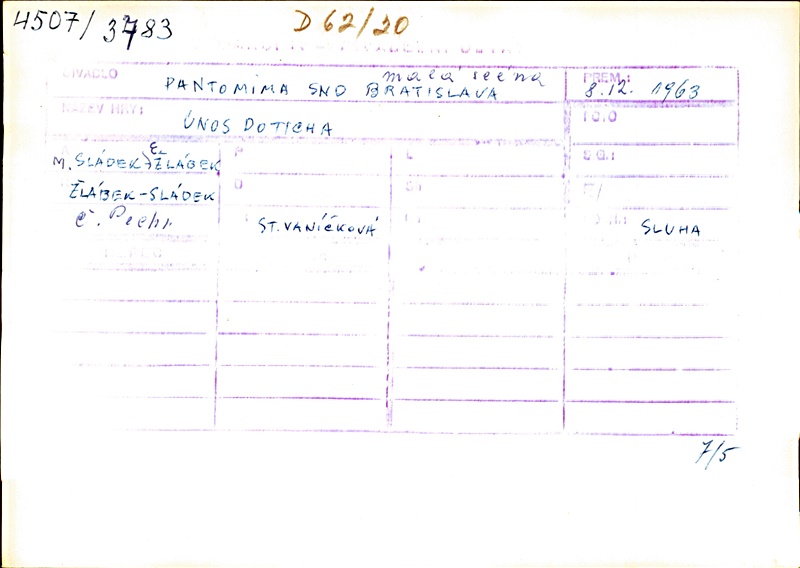 4507/3783
D 62/20
DIVADLO
malá scéna
PANTOMIMA SND BRATISLAVA
PREM.:
8.12. 1963
NÁZEV HRY:
ÚNOS DOTICHA
M. SLÁDEK, E. ŽLÁBEK
ŽLÁBEK-SLÁDEK
ST. VANÍČKOVÁ
SLUHA
7/5